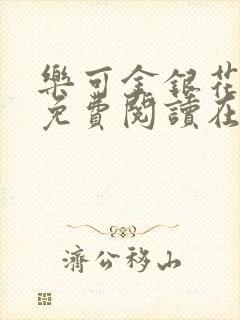 樂可金銀花
免費閱讀在
濟公移山